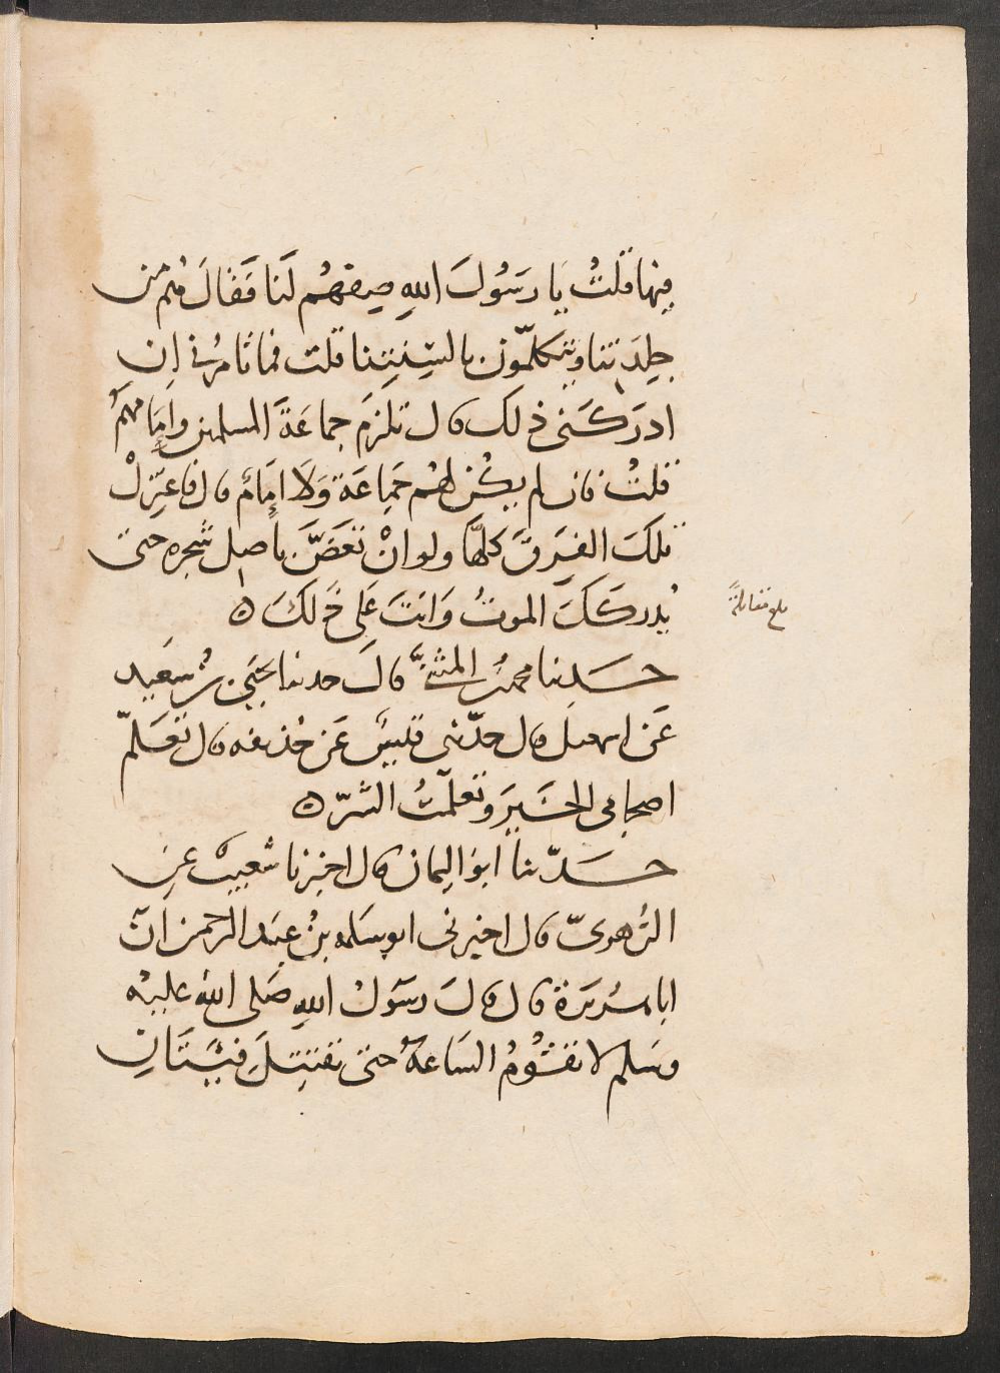 فيها قلتُ يَا رَسُولَ اللهِ صِفهُم لَنَا فَقَالَ هُم من
جِلدَتنا ويتكلمّون بالسِنَتِنا قلت فما تامرُني اِن
ادرَكَنى ذلك قال تلزَم جماعَةَ المسلمين وامَامهمُ
قلتُ فان لم يكُن لهُم جَمِاعَة وَلَا امَامٌ قال فاعتزِلْ
تلكَ الفِرَقَ كلهَّا ولو انْ تَعَضَّ باصل شجره حتى
يُدركَكَ الموتُ وَانتَ عَلى ذَلكَ ه
بلغ مقابلةً
حَدثنا محمدُ بن المثنىَّ قالَ حدثنا يحَيَى بنُ سَعَيد
عَن اسمعيل قال حدّثنى قيسٌ عَن حُذيفه قال تعَلمّ
اصحابى الخَيرَ وتعلّمتُ الشرّ ه
حَدّثنا ابوُ اليمان قال اخبرنا شعيبٌ عنِ
الزُهرىّ قال اخبرنى ابو سَلمه بنُ عبَد الرحمن انّ
ابا هُريَرَة قال قالَ رسَولُ اللهِ صَلى اللهُ عليهْ
وسَلم لا تقُومُ السَاعةُ حتى تقتتِلَ فِئَتَانِ